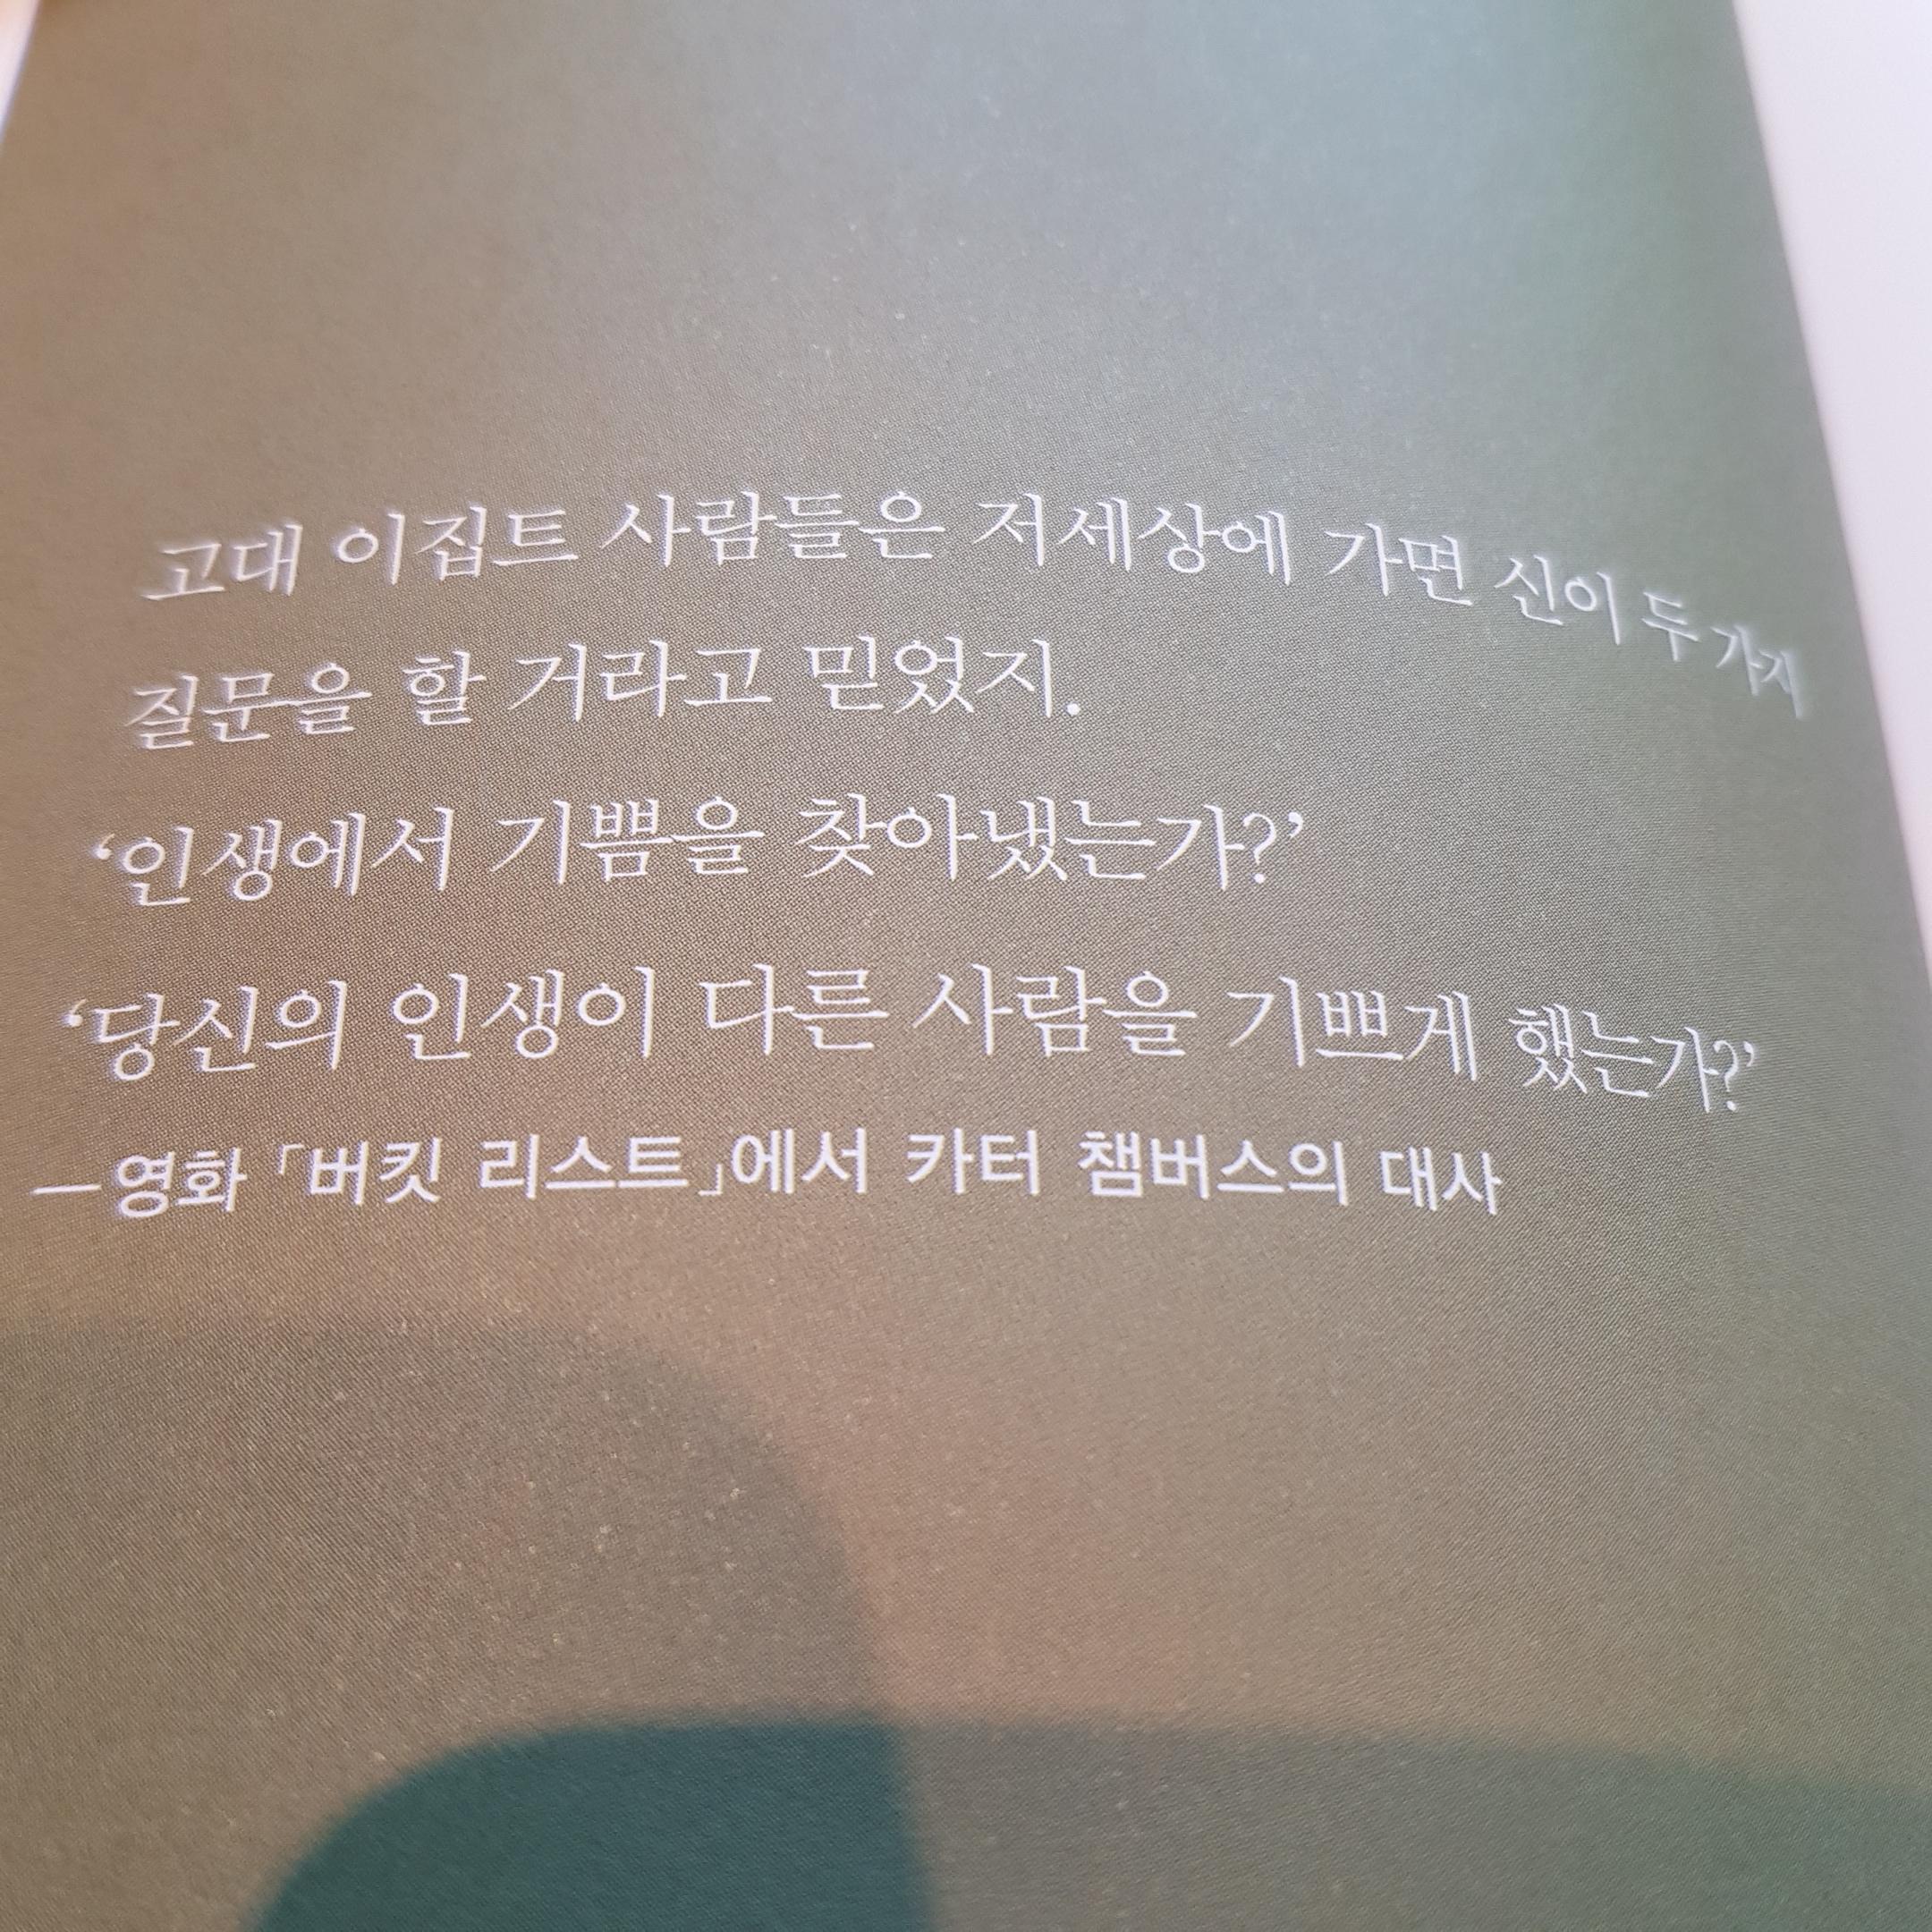 고대 이집트 사람들은 저세상에 가면 신이 두 가지
질문을 할 거라고 믿었지.
‘인생에서 기쁨을 찾아냈는가?’
‘당신의 인생이 다른 사람을 기쁘게 했는가?’
—영화 「버킷 리스트」에서 카터 챔버스의 대사